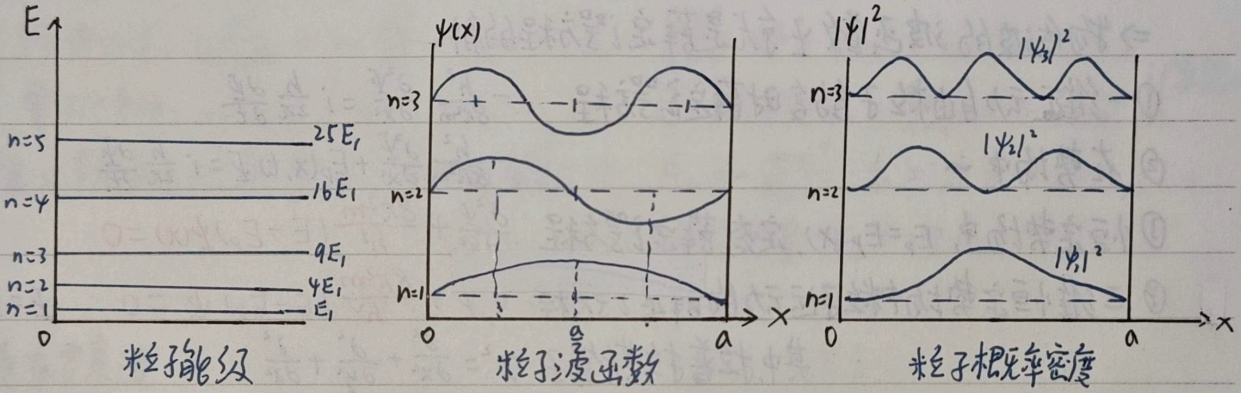 E
n=5 25E₁
n=4 16E₁
n=3 9E₁
n=2 4E₁
n=1 E₁
0
粒子能级
ψ(x)
n=3 +
n=2
n=1
0 a/2 a x
粒子波函数
|ψ|²
n=3 |ψ₃|²
n=2 |ψ₂|²
n=1 |ψ₁|²
0 a x
粒子概率密度